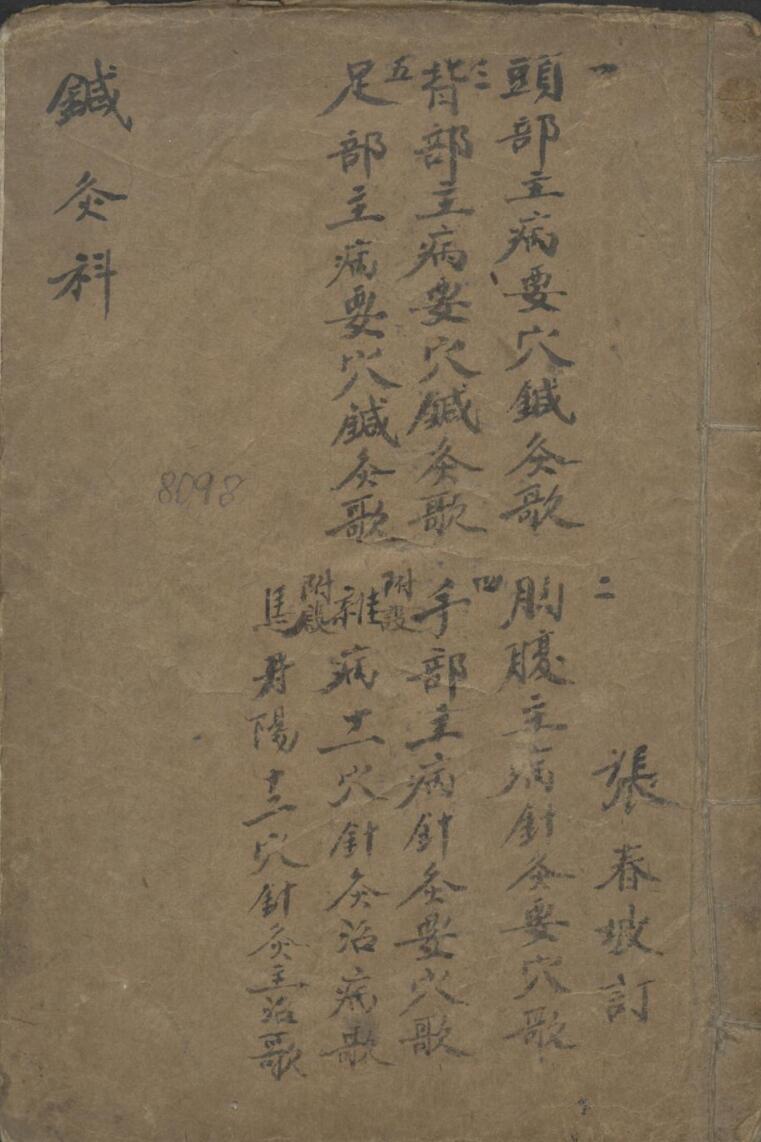 一
頭部主病要穴鍼灸歌
二
胸腹主病針灸要穴歌
張春坡訂
三
背部主病要穴鍼灸歌
四
手部主病針灸要穴歌
五
足部主病要穴鍼灸歌
附設
雜病十一穴針灸治病歌
附設
馬丹陽十二穴針灸主治歌
鍼灸科
8098